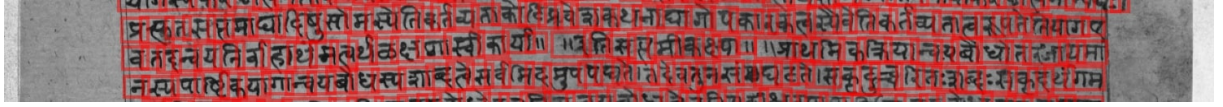 प्रस्कृतसप्तमाद्यादिषुसोमस्येतिकर्तव्यताकोटिप्रवेशकथनाद्यागोपकारकत्वस्येवेतिकर्तव्यतात्वरूपततियागप
वतदन्वयनिर्वाहार्थमत्वर्थलक्षणास्वीकार्या॥ ॥इतिसप्तमीकक्ष्या॥ ॥प्राथमिकक्रियान्वयबोधोत्तरंजायमा
नस्यपार्ष्टिकयागान्वयबोधस्यशाब्दत्वेसर्वमिदमुपपद्यते।तदेवतुनसंघटते।सकृदुच्चरितःशब्दःसकृदर्थंगम